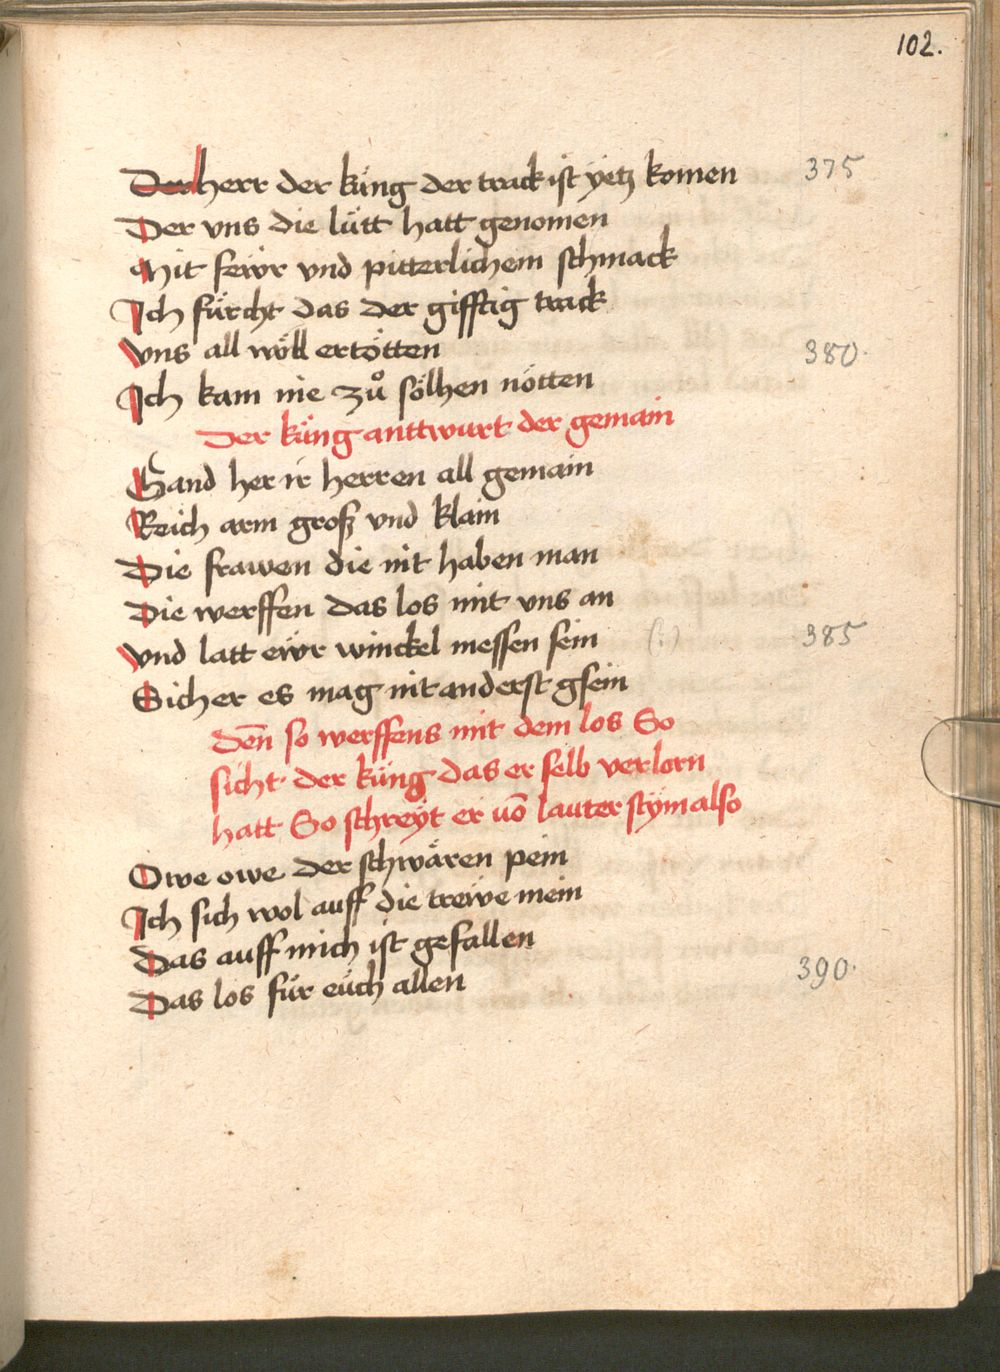 102.
Der herr der küng der track ist yetz komen 375
Der vns die lütt hatt genomen
Mit fewr vnd pitterlichem schmack
Ich fürcht das der gifftig track
Vns all wöll ertötten 380.
Ich kam nie zů sölhen nötten
Der küng anttwurt der gemain
Gand her ir herren all gemain
Reich arm groß vnd klain
Die frawen die nit haben man
Die werffen das los mit vns an
Vnd latt ewr winckel messen sein (!) 385
Sicher es mag nit anderst gsein
den̄ so werffens mit dem los So
sicht der küng das er selb verlorn
hatt So schreÿt er vō lauter stÿm also
Owe owe der schwären pein
Ich sich wol auff die trewe mein
Das auff mich ist gefallen
Das los für euch allen 390.